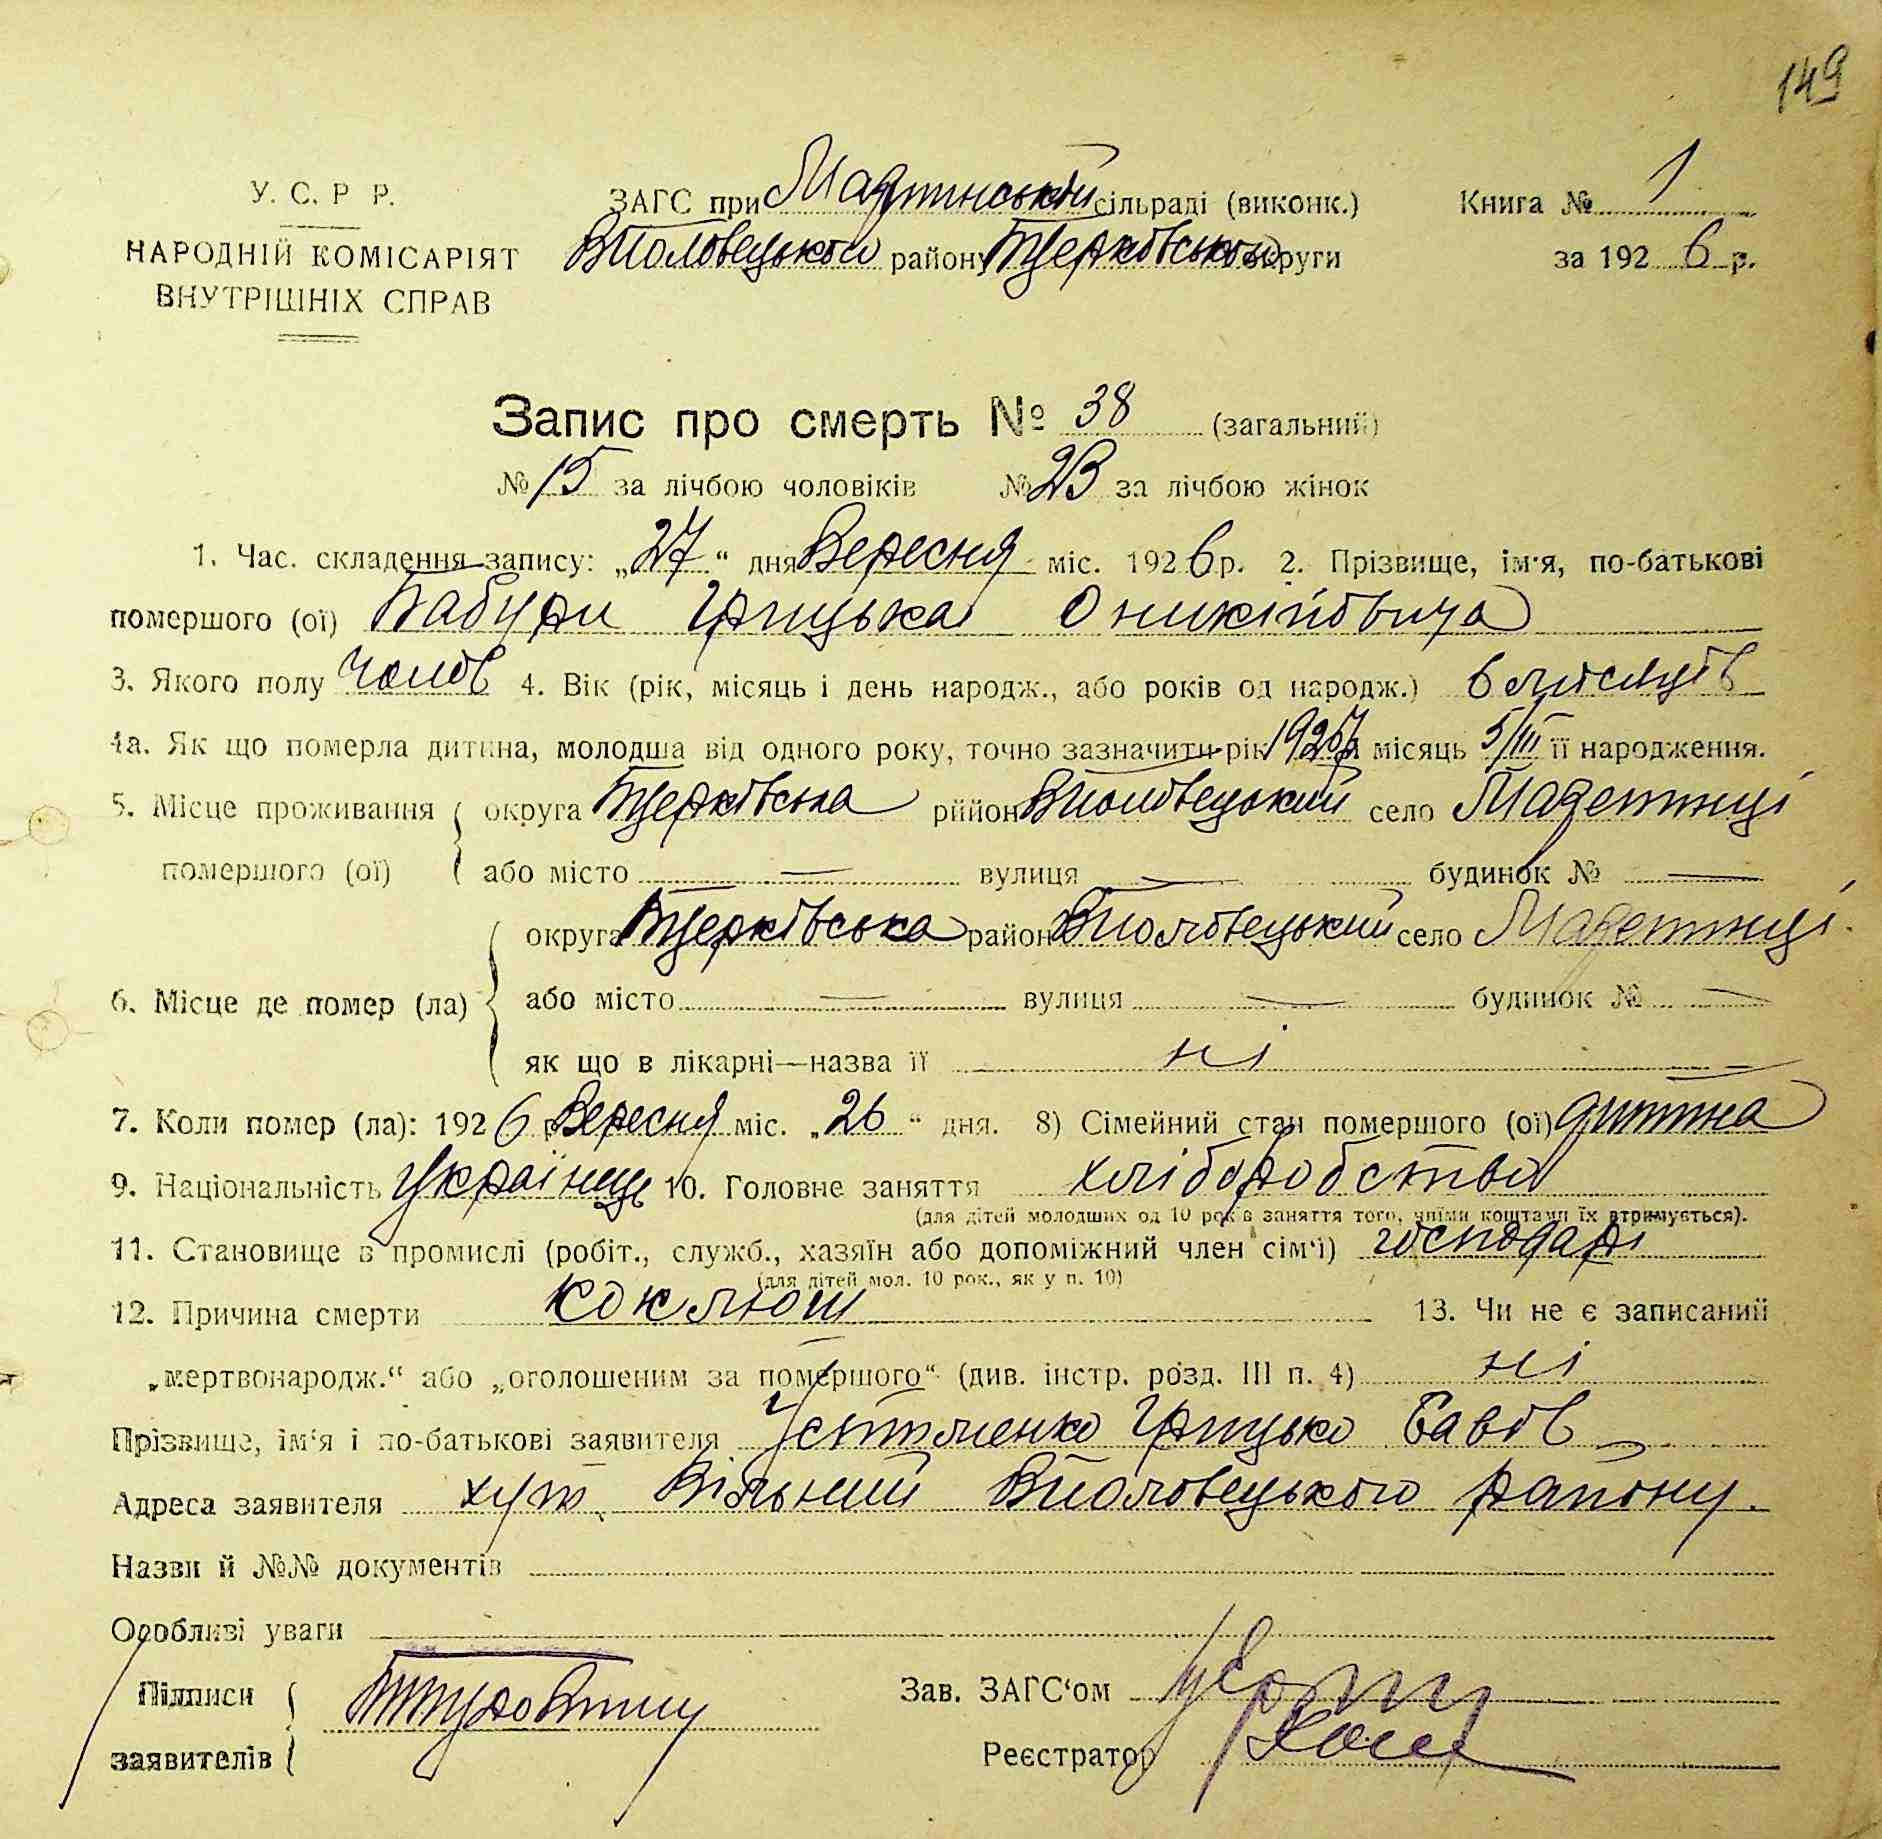 149
У. С. Р Р.
НАРОДНІЙ КОМІСАРІЯТ
ВНУТРІШНІХ СПРАВ
ЗАГС при сільраді (виконк.)
ВПоловецького району БЦерковської округи
Книга № 1
за 1926 р.
Запис про смерть № 38 (загальний)
№ 15 за лічбою чоловіків № 23 за лічбою жінок
1. Час. складення запису: „27“ дня Вересня міс. 1926 р. 2. Прізвище, ім'я, по-батькові
помершого (ої) Бабури Грицька Оникійовича
3. Якого полу чолов 4. Вік (рік, місяць і день народж., або років од народж.) 6 місяців
4а. Як що померла дитина, молодша від одного року, точно зазначити рік місяць 5/III її народження.
5. Місце проживання округа БЦерківська рййон ВПоловецький село Мазепинці
помершого (ої) або місто — вулиця — будинок № —
округа БЦерківська район ВПоловецький село Мазепинці
6. Місце де помер (ла) або місто — вулиця — будинок № —
як що в лікарні—назва її ні
7. Коли помер (ла): 1926 р. Вересня міс. „26“ дня. 8) Сімейний стан помершого (ої) дитина
9. Національність українець 10. Головне заняття хліборобство
(для дітей молодших од 10 років заняття того, чиїми коштами їх втримується).
11. Становище в промислі (робіт., служб., хазяїн або допоміжний член сім'ї) господарі
(для дітей мол. 10 рок., як у п. 10)
12. Причина смерти коклюш 13. Чи не є записаний
„мертвонародж.“ або „оголошеним за помершого“ (див. інстр. розд. III п. 4) ні
Прізвище, ім'я і по-батькові заявителя Устименко Грицько Савов
Адреса заявителя хут. Вільний ВПоловецького району.
Назви й №№ документів
Особливі уваги
Підписи
заявителів
Зав. ЗАГС'ом
Реєстратор